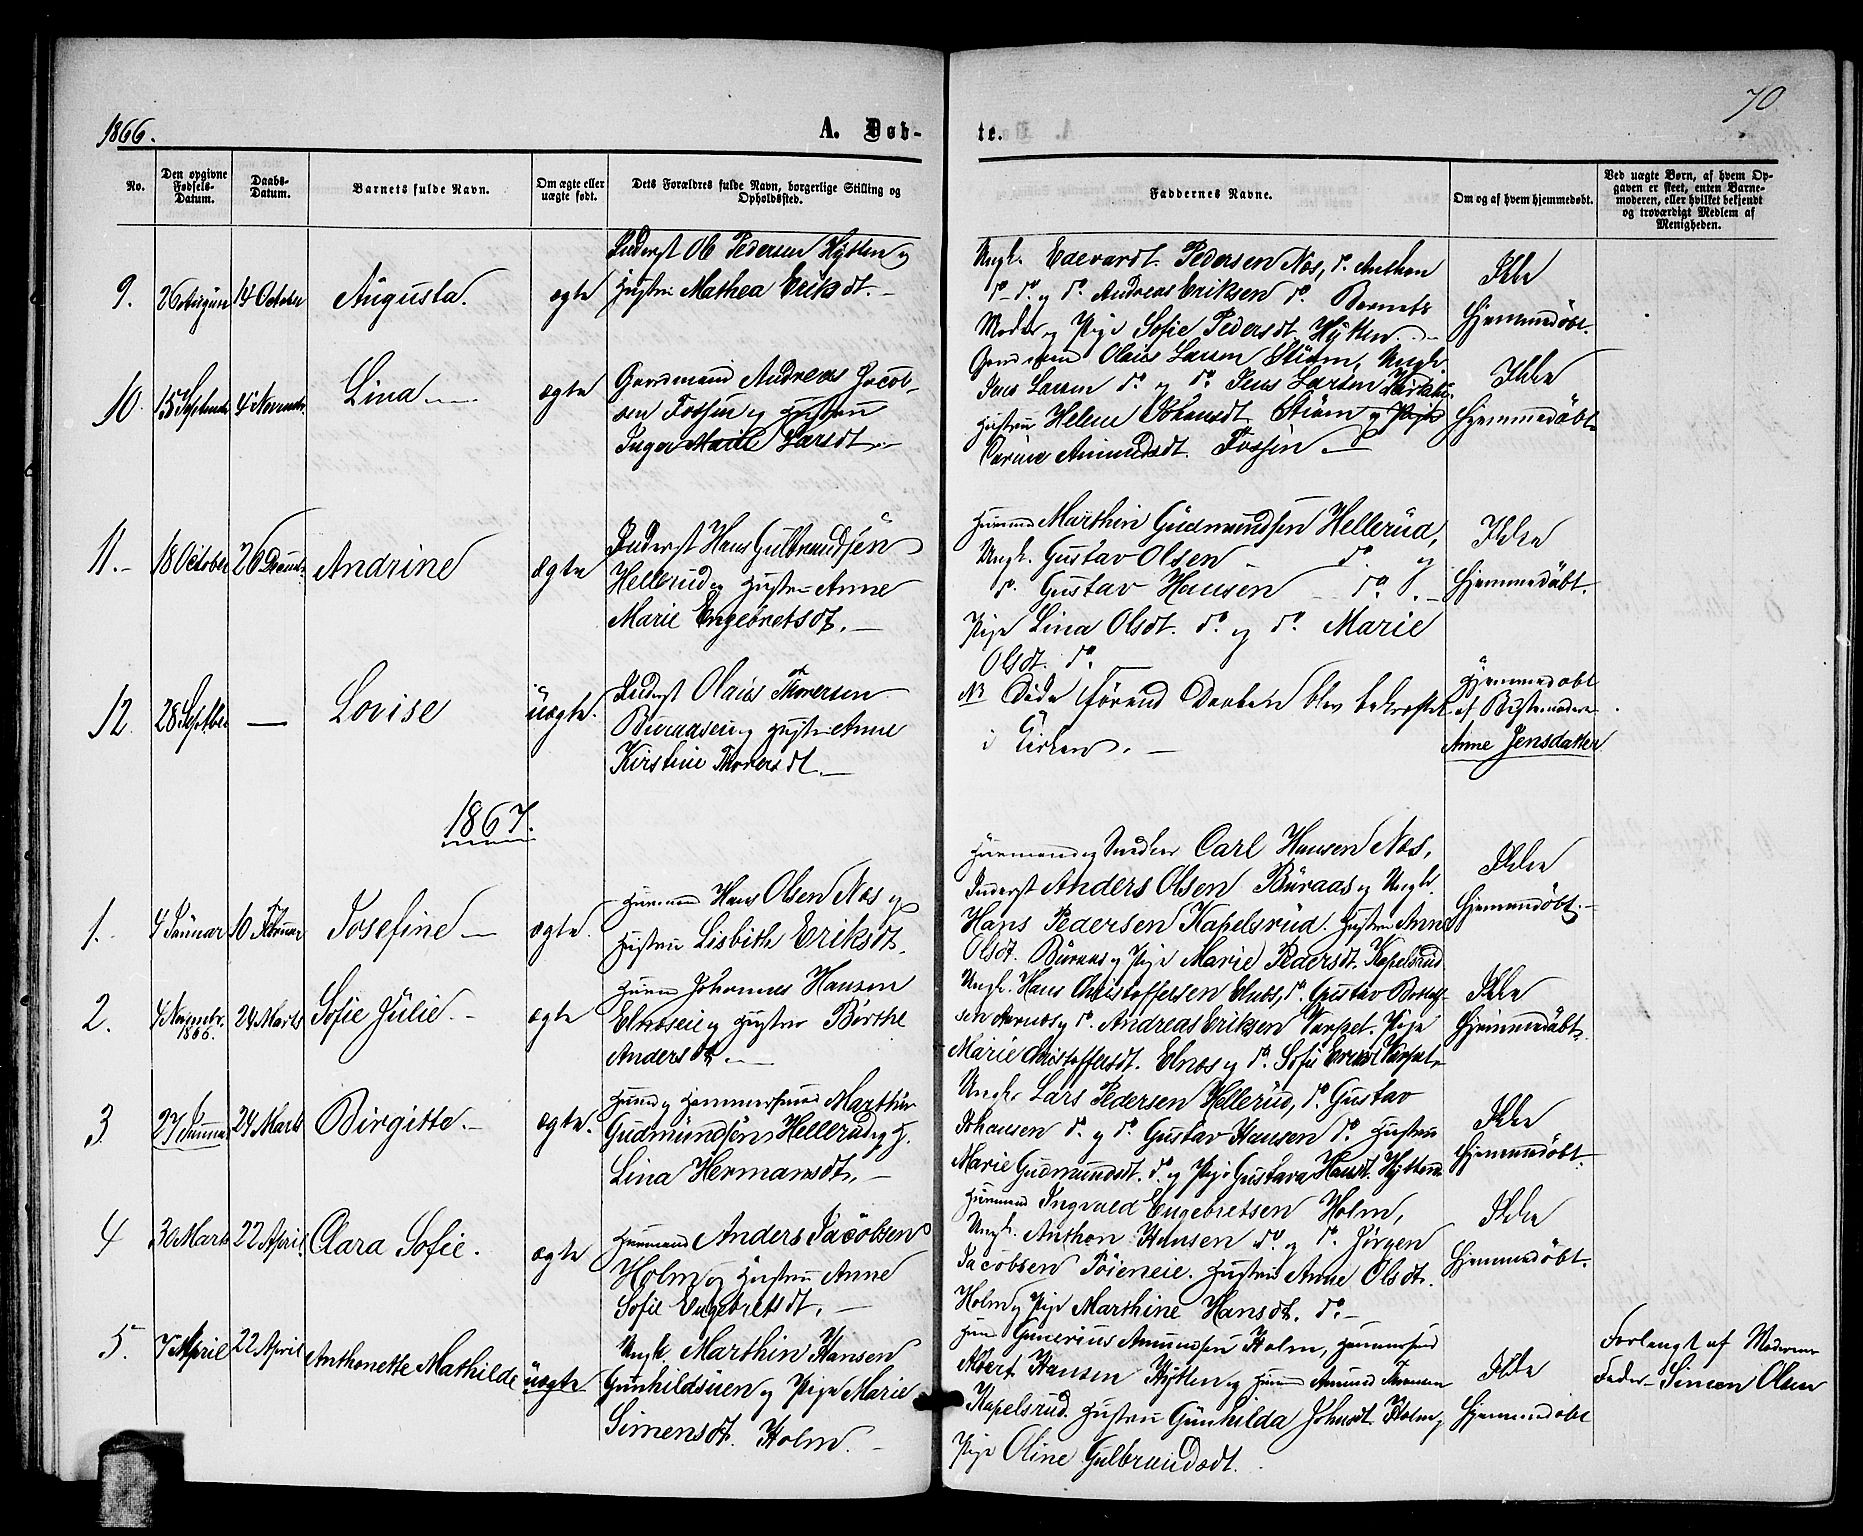 1866.
A. Døb-
te.
70
No.
Den opgivne Fødsels-Datum.
Daabs-Datum.
Barnets fulde Navn.
Om ægte eller uægte født.
Dets Forældres fulde Navn, borgerlige Stilling og Opholdssted.
Faddernes Navne.
Om og af hvem hjemmedøbt.
Ved uægte Børn, af hvem Op-
gaven er skeet, enten Barne-
moderen, eller hvilket bekjendt
og troværdigt Medlem af
Menigheden.
9. 26 August 14 October Augusta. ægte
Inderst Ole Pedersen Hytten og
Hustru Mathea Eriksdt. —
Ungk. Edevardt Pedersen Næs, do. Anthon
do - do. og do. Andreas Eriksen do. Barnets
Moder og Pige Sofie Pedersdt. Hytten. —
Ikke
Hjemmedøbt.
10. 15 September 4 November Lina — ægte
Gaardmand Andreas Jacob-
sen Fossen og Hustru
Inger Marie Larsdt. —
Gaardmand Olaus Larsen Strøm, Ungk.
Jens Larsen do. og do. Jens Larsen
Hustru Helene Johansdt Strøm og Pige
Karine Amundsdt. Fossen —
Ikke
Hjemmedøbt.
11. — 18 October 26 Decembr. Andrine ægte
Inderst Hans Gulbrandsen
Hellerud og Hustru Anne
Marie Engebretsdt. —
Huusmand Marthin Gudmundsen Hellerud,
Ungk. Gustav Olsen do. og
do. Gustav Hansen — do. —
Pige Lina Olsdt. do. og do. Marie
Olsdt. do.
Ikke
Hjemmedøbt.
12 28 Septber — Lovise uægte.
Inderst Olaus Thoresen
Buraasen og Hustru Anne
Kirstine Thoresdt. —
NB Døde førend Daaben blev bekræftet
i Kirken. —
Hjemmedøbt
af Bestemoderen
Anne Jensdatter
1867.
1. 4 Januar 10 Februar Josefine — ægte.
Huusmand Hans Olsen Næs og
Hustru Lisbeth Eriksdt.
Huusmand og Snedker Carl Hansen Næs,
Inderst Anders Olsen Buraas og Ungk.
Hans Pedersen Kapelsrud. Hustru Anne
Olsdt. Buraas og Pige Marie Pedersdt. Kapelsrud
Ikke
Hjemmedøbt. —
2. 4 Novembr. 1866. 24 Marts Sofie Julie. — ægte
Huusm. Johannes Hansen
Elnæseie og Hustru Birthe
Andersdt. —
Ungk. Hans Christoffersen Elnæs, do. Gustav
og do. Andreas Eriksen Varpet. Pige
Marie Christoffersdt. Elnæs og do. Sofie Eriksdt Varpet
Ikke
Hjemmedøbt.
3 27 Januar 24 Marts Birgitte. — ægte.
Huusm. og Hammersmed Marthin
Gudmundsen Hellerud og H.
Lina Hermansdt. —
Ungk. Lars Pedersen Hellerud, do. Gustav
Johansen do. og do. Gustav Hansen do. Hustru
Marie Gudmundsdt. do. og Pige Gustava Hansdt. Hytten
Ikke
Hjemmedøbt.
4 30 Marts 22 April Clara Sofie. ægte
Huusmand Anders Jacobsen
Holm og Hustru Anne
Sofie Engebretsdt. —
Huusmand Ingvald Engebretsen Holm,
Ungk. Anthon Hansen do. og do. Jørgen
Jacobsen Tøieneie. Hustru Anne Olsdt.
Holm og Pige Marthine Hansdt. do. —
Ikke
Hjemmedøbt.
5. 7 April 22 April Anthonette Mathilde uægte
Ungk. Marthin Hansen
Gunhildsøen og Pige Marie
Simensdt. Holm. —
Huusm. Gunerius Amundsen Holm, Hammersmed
Albert Hansen Hytten og Huusm. Amund Arnesen
Kapelsrud. Hustru Gunhilda Johansdt. Holm og
Pige Oline Gulbrandsdt.
Ikke
Hjemmedøbt
Forlangt af Moderens
Fader — Simen Olsen